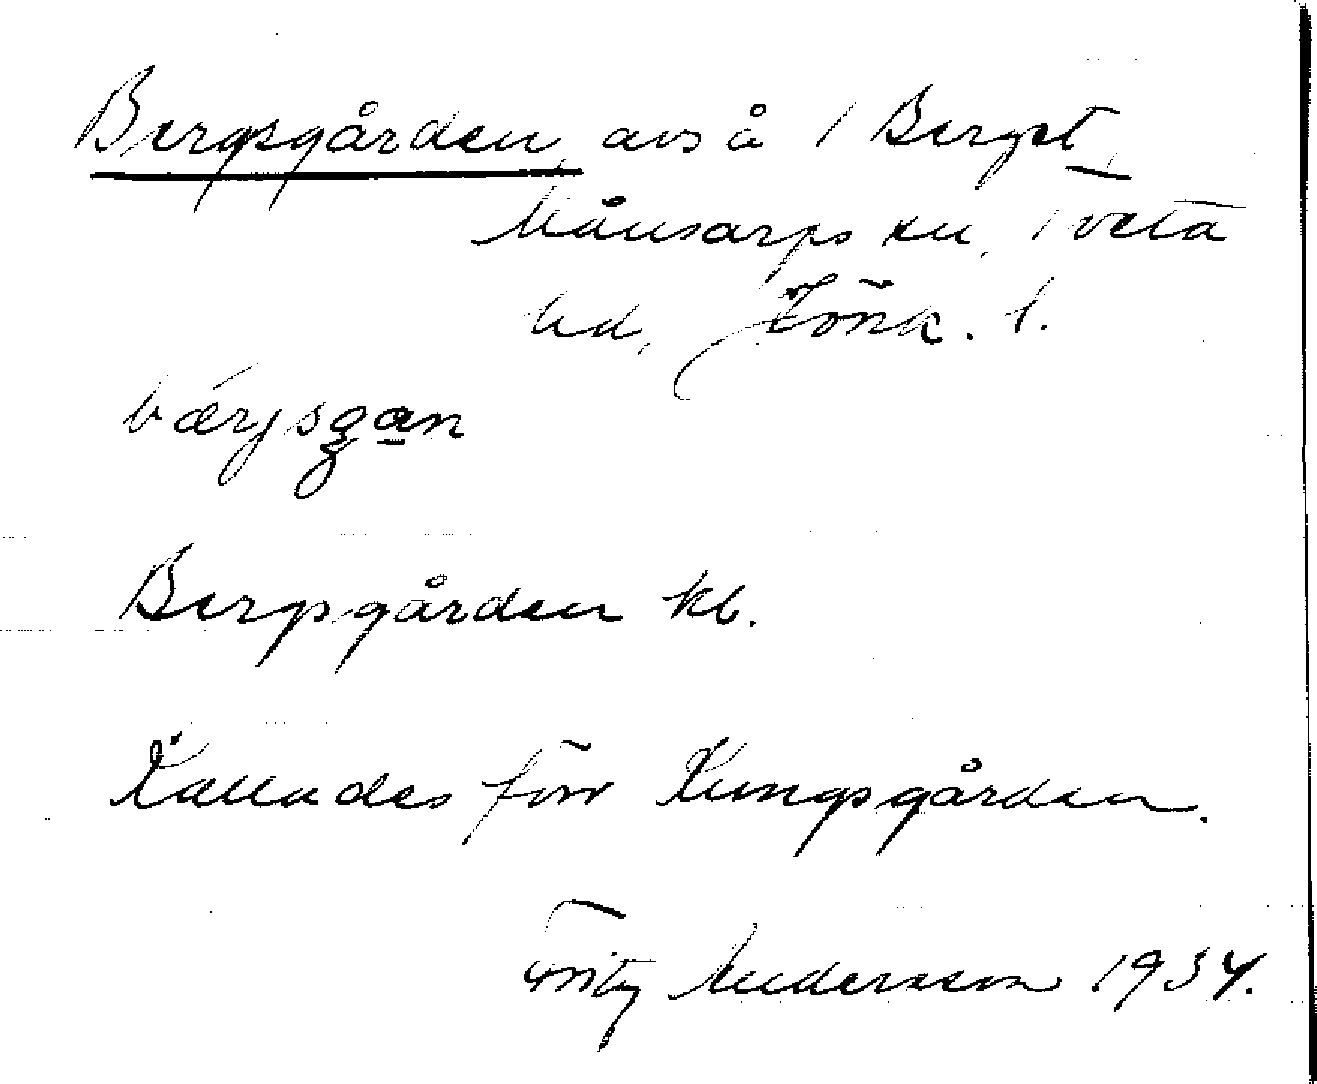 Bergsgården, avs å 1 Berget,
Månsarps sn, Tveta
hd, Jönk. l.
bærjsgan
Bergsgården kb.
Kallades förr Kungsgården.
Fritz Andersson 1934.